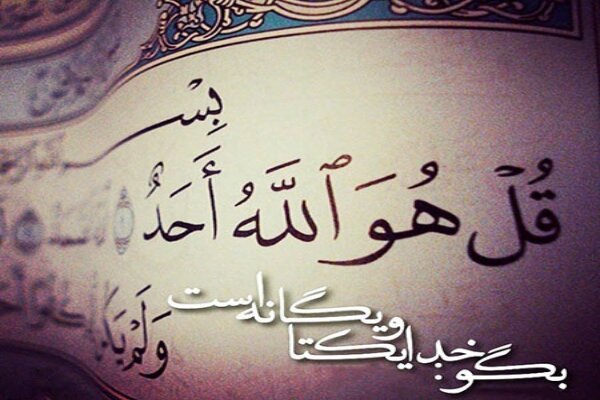 بِسْ
قُلْ هُوَ ٱللَّهُ أَحَدٌ ۝١
وَلَمْ
بگو: خدا یکتا
و یگانه است